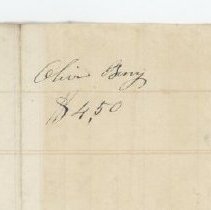 Olive Berry
$4,50